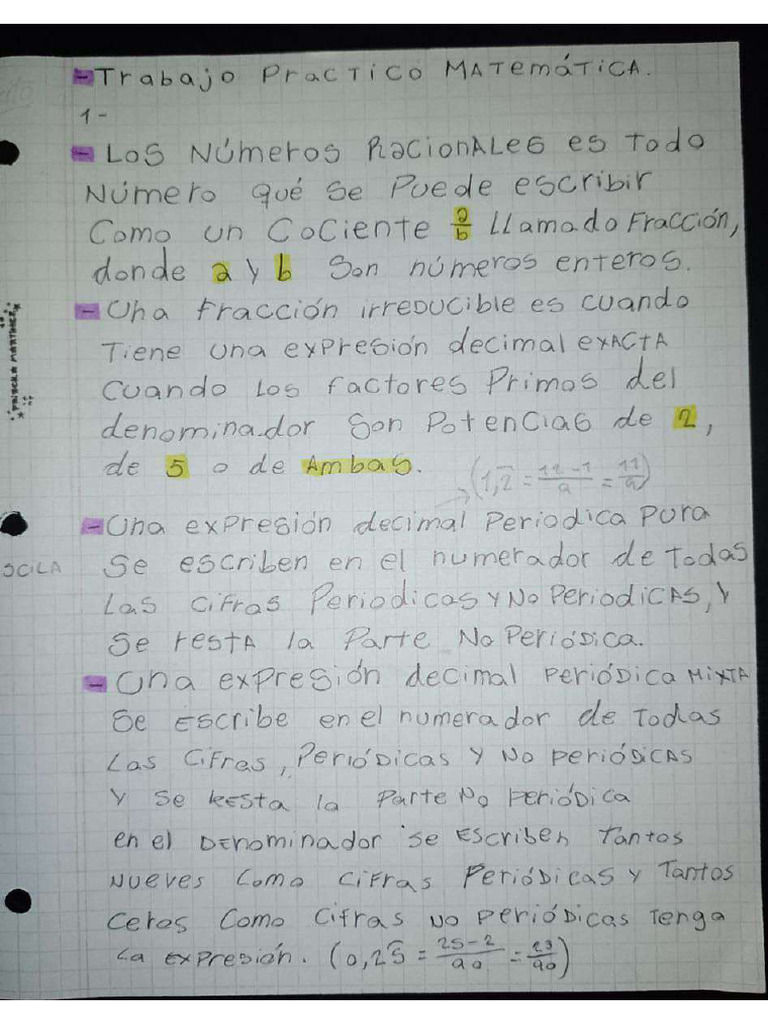 -Trabajo Practico Matemática.
1-
- Los Números Racionales es todo
Número qué se Puede escribir
Como un Cociente a/b llamado Fracción,
donde a y b Son números enteros.
- Una Fracción irreducible es cuando
Tiene una expresión decimal exacta
Cuando los factores Primos del
denominador Son Potencias de 2,
de 5 o de Ambas.
(1,2̅ = 12-1/9 = 11/9)
-Una expresión decimal Periodica Pura
Se escriben en el numerador de Todas
Las Cifras Periodicas y No Periodicas, y
Se resta la Parte No Periódica.
- Una expresión decimal Periódica Mixta
Se Escribe en el numerador de Todas
Las Cifras, Periódicas y No periódicas
y Se Resta la Parte No periódica
en el Denominador Se Escriben Tantos
Nueves Como Cifras Periódicas y Tantos
Ceros Como Cifras no periódicas Tenga
La Expresión. (0,25̅ = 25-2/90 = 23/90)
PRISCILA MARTINEZ
SCILA